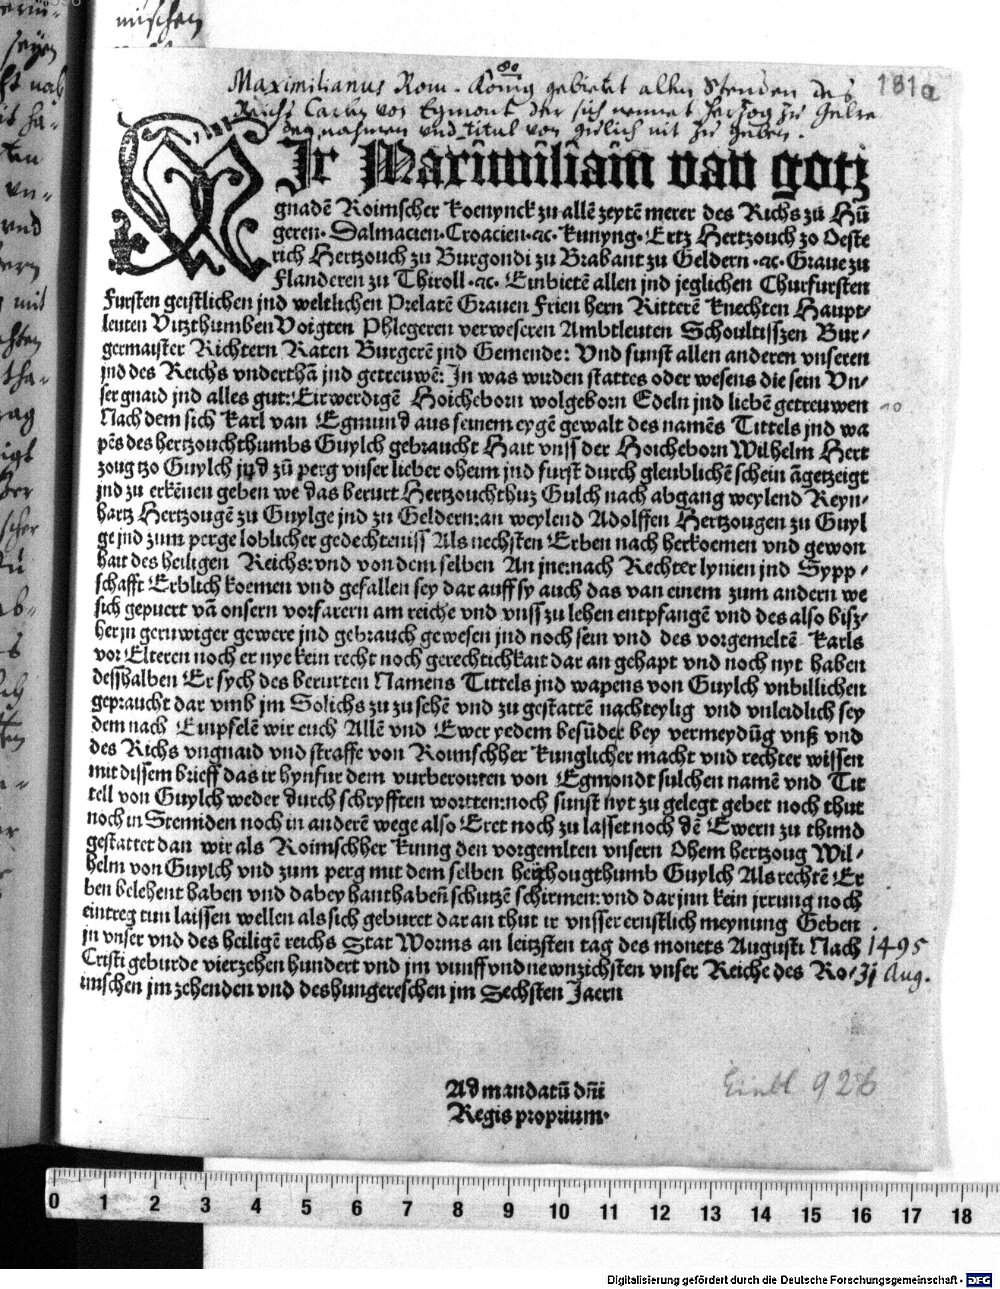 mischen
80
Maximilianus Rom. König gebietet allen Stenden des 181a
Reichs Carln von Egmont, der sich nennet Herzog zu Gelre
den nahmen und titul von Gulich nit zu geben.
WIr Maximiliain van gotz
gnadē Roimscher Koenynck zu allē zeytē merer des Richs zů Hū
geren· Dalmacien· Croacien ·ꝛc· Kunyng· Ertz Hertzouch zo Oeste
rich Hertzouch zu Burgondi zu Brabant zu Geldern ·ꝛc· Graue zu
Flanderen zu Thiroll ·ꝛc· Einbietē allen jnd jeglichen Churfursten
Fursten geistlichen jnd weltlichen Prelatē Grauen Frien hern Ritterē Knechten Haupt/
leuten Vitzthumben Voigten Phlegeren verweseren Ambtleuten Schoultisszen Bur/
germaister Richtern Raten Burgerē jnd Gemende: Vnd sunst allen anderen vnseren
jnd des Reichs vnderthā jnd getreuwē: Jn was wirden stattes oder wesens die sein Vn/
ser gnaid jnd alles gut: Eirwerdigē Hoicheborn wolgeborn Edeln jnd liebē getreuwen
Nach dem sich Karl van Egmund aus seinem eygē gewalt des namēs Tittels jnd wa
pēs des hertzouchthumbs Guylch gebraucht Hait vnss der Hoicheborn Wilhelm Hert
zoug tzo Guylch jnd zū perg vnser lieber oheim jnd furst durch gleublichē schein āgetzeigt
jnd zu erkēnen geben we das berurt Hertzouchthuz Gulch nach abgang weylend Reyn/
hartz Hertzougē zu Guylge jnd zu Geldern: an weylend Adolffen Hertzougen zu Guyl
ge jnd zum perge loblicher gedechteniss Als nechsten Erben nach herkoemen vnd gewon
hait des heiligen Reichs: vnd von dem selben An jne: nach Rechter lynien jnd Sypp/
schafft Erblich koemen vnd gefallen sey dar auff sy auch das van einem zum andern we
sich gepuert vā onsern vorfarern am reiche vnd vnss zu lehen entpfangē vnd des also bisz/
her jn geruwiger gewere jnd gebrauch gewesen jnd noch sein vnd des vorgemeltē Karls
vor Elteren noch er nye kein recht noch gerechtichkait dar an gehapt vnd noch nyt haben
desshalben Er sych des berurten Namens Tittels jnd wapens von Guylch vnbillichen
gepraucht dar vmb jm Solichs zu zu sehē vnd zu gestattē nachteylig vnd vnleidlich sey
dem nach Einpfelē wir euch Allē vnd Ewer yedem besūder bey vermeydūg vnß vnd
des Richs vngnaid vnd straffe von Roimschher Kunglicher macht vnd rechter wissen
mit dissem brieff das ir hynfur dem vurberourten von Egmondt sulchen namē vnd Tit
tell von Guylch weder durch schryfften wortten: noch sunst nyt zu gelegt gebet noch thut
noch in Stemiden noch in anderē wege also Eret noch zu lasset noch dē Ewern zu thund
gestattet dan wir als Roimschher Kunig den vorgemlten vnsern Ohem hertzoug Wil/
helm von Guylch vnd zum perg mit dem selben hertzhougthumb Guylch Als rechtē Er
ben belehent haben vnd dabey hanthabeñ schutzē schirmen: vnd dar jnn kein jrrung noch
eintreg tun laissen wellen als sich geburet dar an thut ir vnsser ernstlich meynung Geben
jn vnser vnd des heiligē reichs Stat Worms an leitzsten tag des monets Augusti Nach 1495
Cristi geburde vierzehen hundert vnd jm vunff vnd newnzichsten vnser Reiche des Ro/ 31 Aug.
mschen jm zehenden vnd des hungereschen jm Sechsten Jaern
Ad mandatū dñi
Regis proprium·
Einbl 926
0 1 2 3 4 5 6 7 8 9 10 11 12 13 14 15 16 17 18
Digitalisierung gefördert durch die Deutsche Forschungsgemeinschaft - DFG